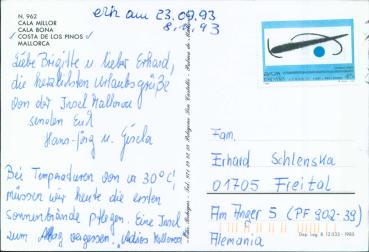 N. 962
CALA MILLOR
CALA BONA
COSTA DE LOS PINOS
MALLORCA
erh. am 23.09.93
93
Liebe Brigitte u. lieber Erhard,
die herzlichsten Urlaubsgrüße
von der Insel Mallorca
senden Euch
Hans-Jörg u. Gisela
Bei Temperaturen von ca 30°C,
müssen wir heute die ersten
Sonnenbrände pflegen. Eine Insel
zum Alltag vergessen, Mallorca
Fam.
Erhard Schlenska
01705 Freital
Am Anger 5 (PF 902-39)
Alemania
Dep. Leg. B.